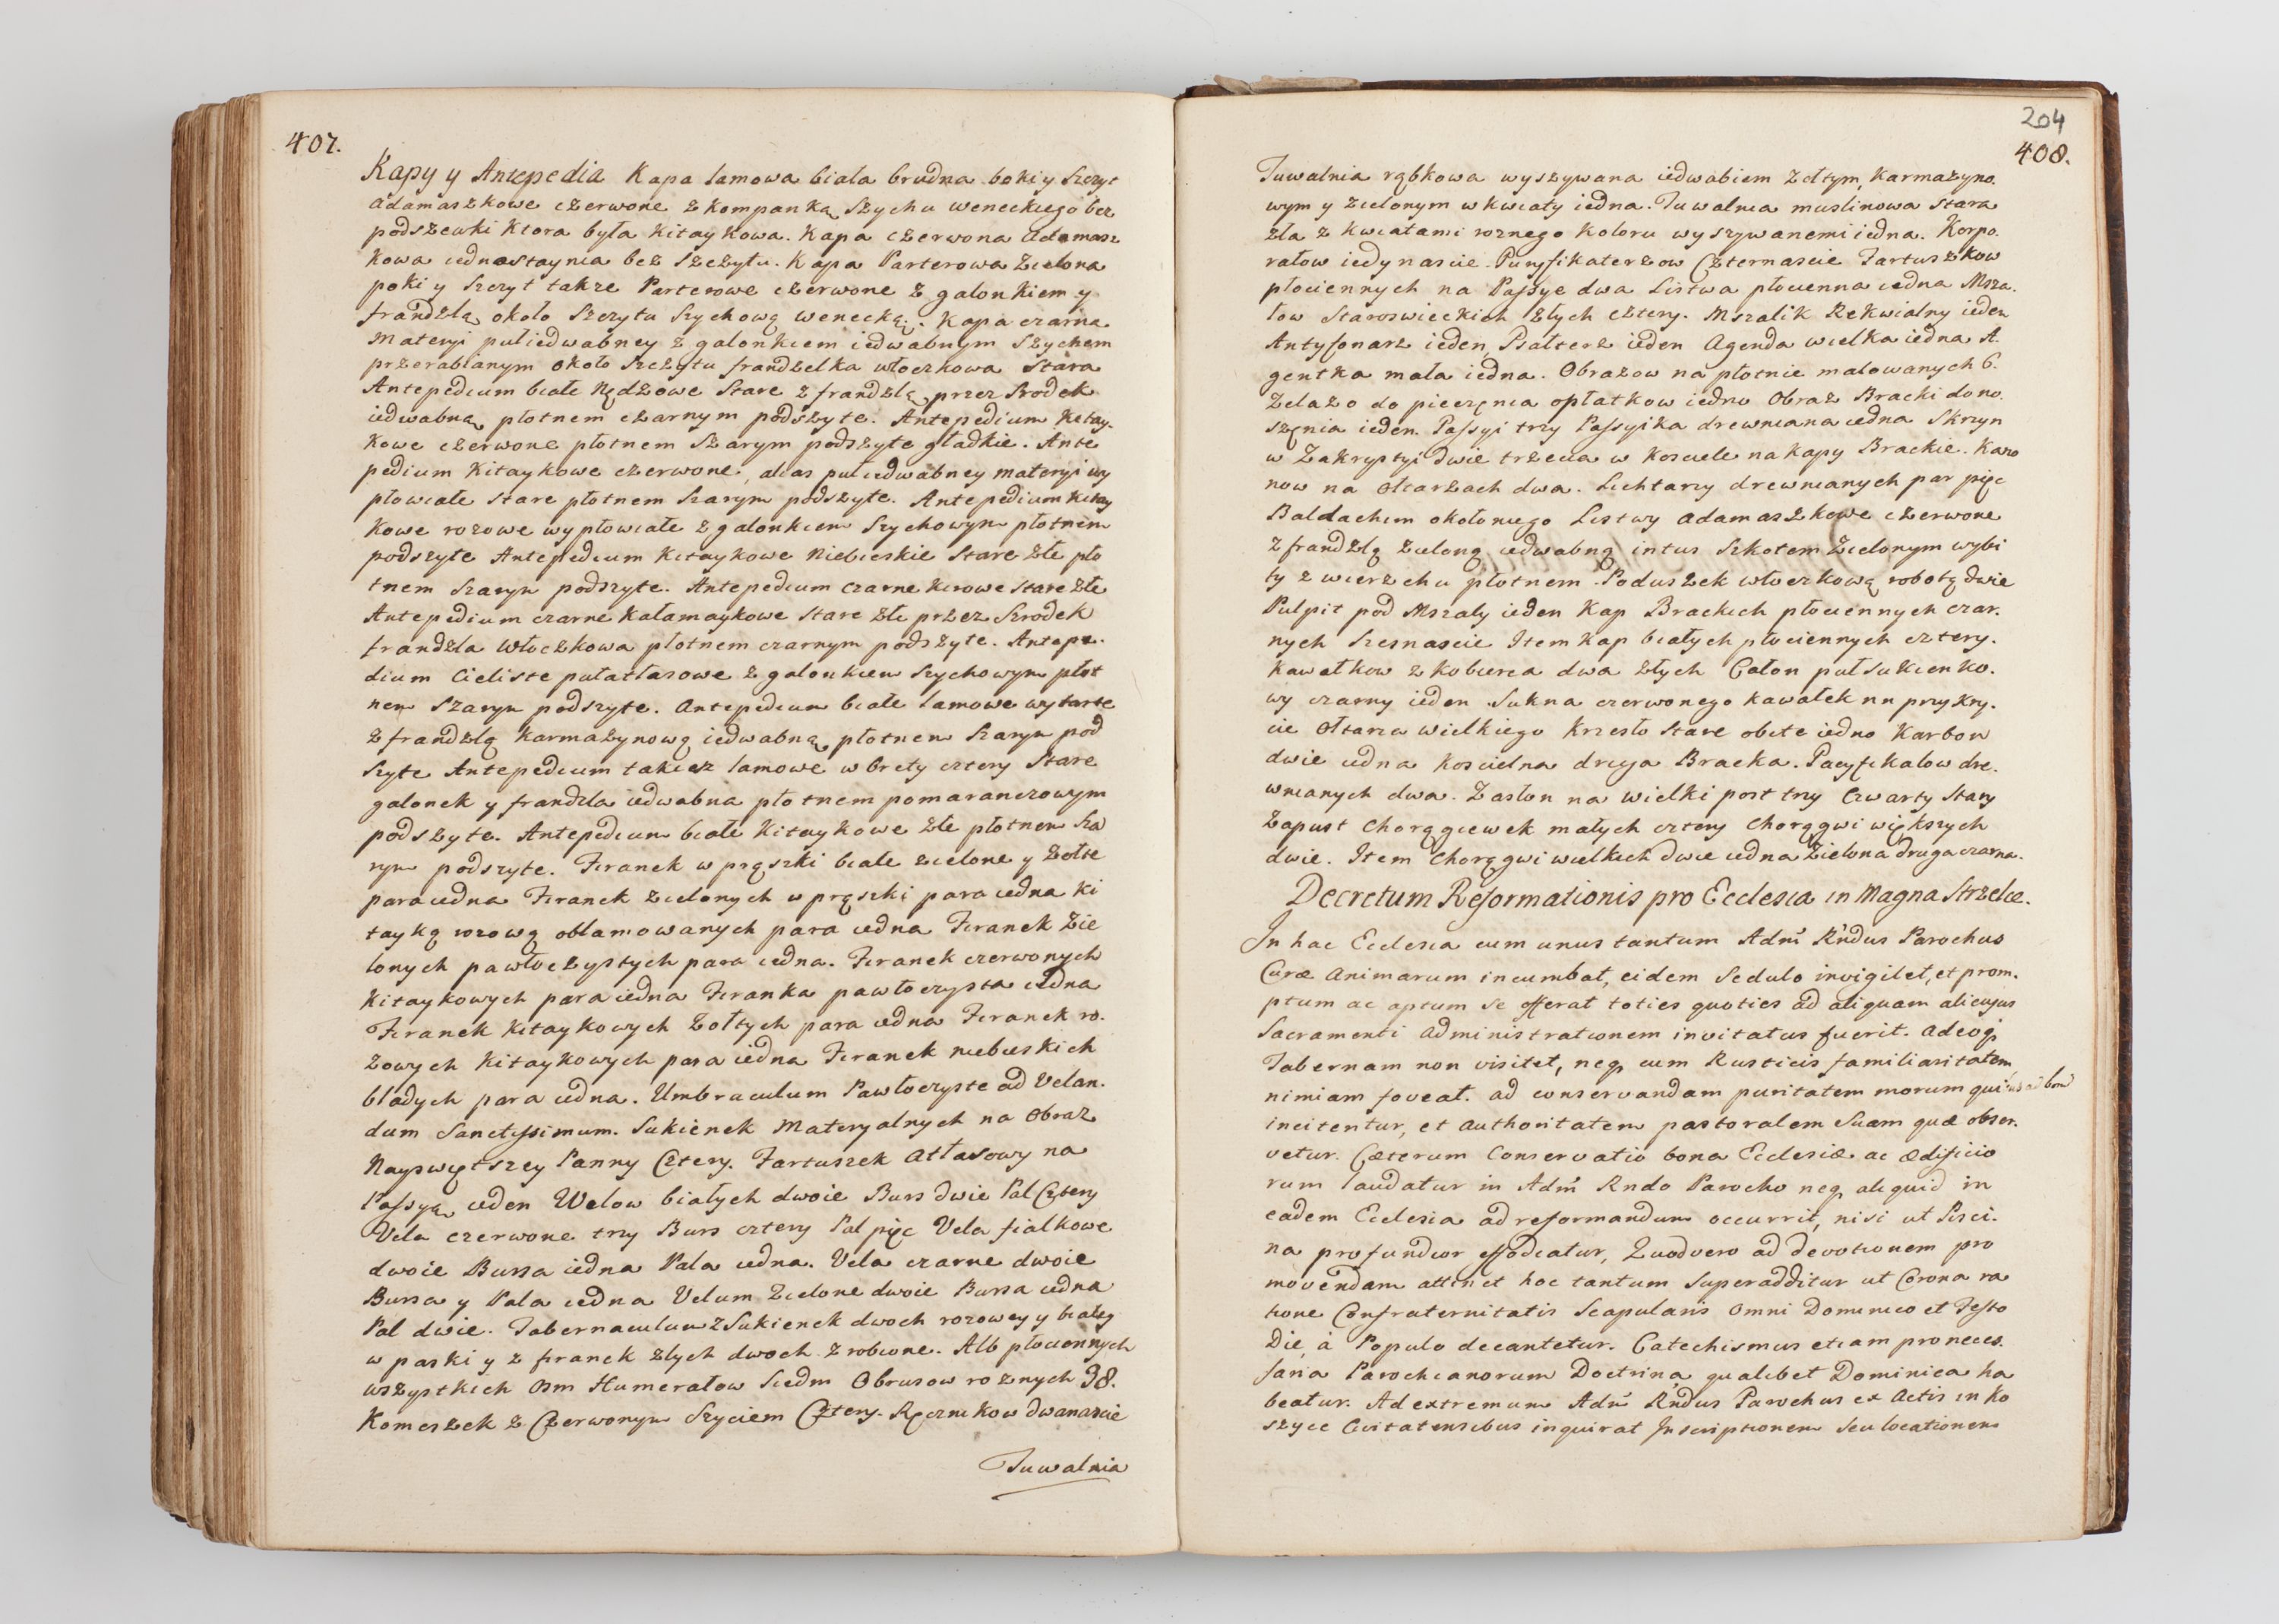 407.
Kapy y Antepedia Kapa lamowa biala brudna boki y Szczyt
adamaszkowe czerwone z kompanką Szychu weneckiego bez
podszewki ktora była Kitaykowa. Kapa czerwona adamasz
kowa iednostaynia bez Szczytu. Kapa Parterowa Zielona
poki y Szczyt takze Parterowe czerwone z galonkiem y
frandzlą około Szczytu Szychową wenecką. Kapa czarna
Materyi puliedwabney z galonkiem iedwabnym Szychem
przerabianym około Szczytu frandzelka włoczkowa Stara
Antepedium białe Nędzowe Stare z frandzlą przez Srodek
iedwabną płotnem czarnym podszyte. Antepedium Kitay-
kowe czerwone płotnem Szarym podszyte gładkie. Ante
pedium Kitaykowe czerwone, alias puliedwabney materyi wy
płowiałe stare płotnem Szarym podszyte. Antepedium Kitay
kowe rozowe wypłowiałe z galonkiem Szychowym płotnem
podszyte Antepedium Kitaykowe Niebieskie Stare złe pło
tnem Szarym podszyte. Antepedium czarne Kirowe stare złe
Antepedium czarne Kałamaykowe stare złe przez Srodek
frandzla Włoczkowa płotnem czarnym podszyte. Antepe-
dium Cieliste pułatłasowe z galonkiem Szychowym płot
nem Szarym podszyte. Antepedium białe lamowe wytarte
z frandzlą Karmazynową iedwabną płotnem Szarym pod
szyte Antepedium takiesz lamowe w brety cztery Stare
galonek y frandzla iedwabna płotnem pomaranczowym
podszyte. Antepedium białe Kitaykowe złe płotnem Sza
rym podszyte. Firanek w prąszki białe zielone y żołte
para iedna Firanek zielonych w prąszki para iedna Ki
tayką rozową oblamowanych para iedna Firanek Zie
lonych pawłoczystych para iedna. Firanek czerwonych
Kitaykowych para iedna Firanka pawłoczysta iedna
Firanek Kitaykowych Zołtych para iedna Firanek ro-
zowych Kitaykowych para iedna Firanek niebieskich
bladych para iedna. Umbraculum Pawłoczyste ad Velan-
dum Sanctissimum. Sukienek Materyalnych na Obraz
Nayswiętszey Panny Cztery. Fartuszek Atłasowy na
Passyą ieden Welow białych dwoie Burs dwie Pal Cztery
Vela czerwone trzy Burs cztery Pal pięc Vela fialkowe
dwoie Bursa iedna Pala iedna. Vela czarne dwoie
Bursa y Pala iedna Velum Zielone dwoie Bursa iedna
Pal dwie. Tabernaculum z Sukienek dwoch rozowey y białey
w paski y z firanek złych dwoch zrobione. Alb płociennych
wszystkich Osm Humerałow Siedm Obrusow roznych 38.
Komeszek z Czerwonym Szyciem Cztery. Ręcznikow dwanascie
Tuwalnia
204
408.
Tuwalnia rąbkowa wyszywana iedwabiem Zołtym, Karmazyno-
wym y zielonym w kwiaty iedna. Tuwalnia muslinowa stara
zła z kwiatami roznego Koloru wyszywanemi iedna. Korpo-
rałow iedynascie Puryfikaterzow Czternascie Fartuszkow
płociennych na Passye dwa Listwa płocienna iedna Msza-
łow Staroswieckich złych cztery. Mszalik Rekwialny ieden
Antyfonarz ieden, Psałterz ieden Agenda wielka iedna A-
gentka mała iedna. Obrazow na płotnie malowanych 6.
Zelazo do pieczęnia opłatkow iedno Obraz Bracki do no-
szęnia ieden. Passyi trzy Passyika drewniana iedna Skrzyn
w Zakrystyi dwie trzecia w Kosciele na kapy Brackie. Kano
now na Ołtarzach dwa. Lichtarzy drewnianych par pięc
Baldachim około niego Listwy adamaszkowe czerwone
z frandzlą zieloną iedwabną intus Szkotem Zielonym wybi
ty z wierzchu płotnem. Poduszek włoczkową robotą dwie
Pulpit pod Mszały ieden Kap Brackich płociennych czar-
nych Szesnascie Item Kap białych płociennych cztery.
Kawałkow z kobierca dwa złych Całon pułsukienko-
wy czarny ieden Sukna czerwonego kawałek na przykry-
cie Ołtarza wielkiego Krzesło Stare obite iedno Karbon
dwie iedna Koscielna druga Bracka. Pacyfikałow dre-
wnianych dwa. Zasłon na wielki post trzy Czwarty Stary
Zapust Chorągiewek małych cztery Chorągwi większych
dwie. Item Chorągwi wielkich dwie iedna Zielona druga czarna.
Decretum Reformationis pro Ecclesia in Magna Strzelce.
In hac Ecclesia cum unus tantum Adm̃ Rñdus Parochus
Curæ animarum incumbat, eidem Sedulo invigilet, et prom-
ptum ac aptum se offerat toties quoties ad aliquam alicujus
Sacramenti administrationem invitatus fuerit. adeoq
Tabernam non visitet, neq cum Rusticis familiaritatem
nimiam foveat. ad conservandam puritatem morum quibus ad bona
incitentur, et authoritatem pastoralem Suam quæ obser-
vetur. Cæterum Conservatio bona Ecclesiæ ac ædificio
rum laudatur in Adm̃ Rndo Parocho neq aliquid in
eadem Ecclesia ad reformandum occurrit, nisi ut Pisci-
na profundior effodiatur, Quodvero ad devotionem pro
movendam attinet hoc tantum Superadditur ut Corona ra
tione Confraternitatis Scapularis Omni Dominico et Festo
Die, à Populo decantetur. Catechismus etiam pro neces-
saria Parochianorum Doctrina qualibet Dominica ha
beatur. Ad extremum Adm̃ Rñdus Parochus ex Actis in Ko
szyce Civitatensibus inquirat Inscriptionem seu locationem